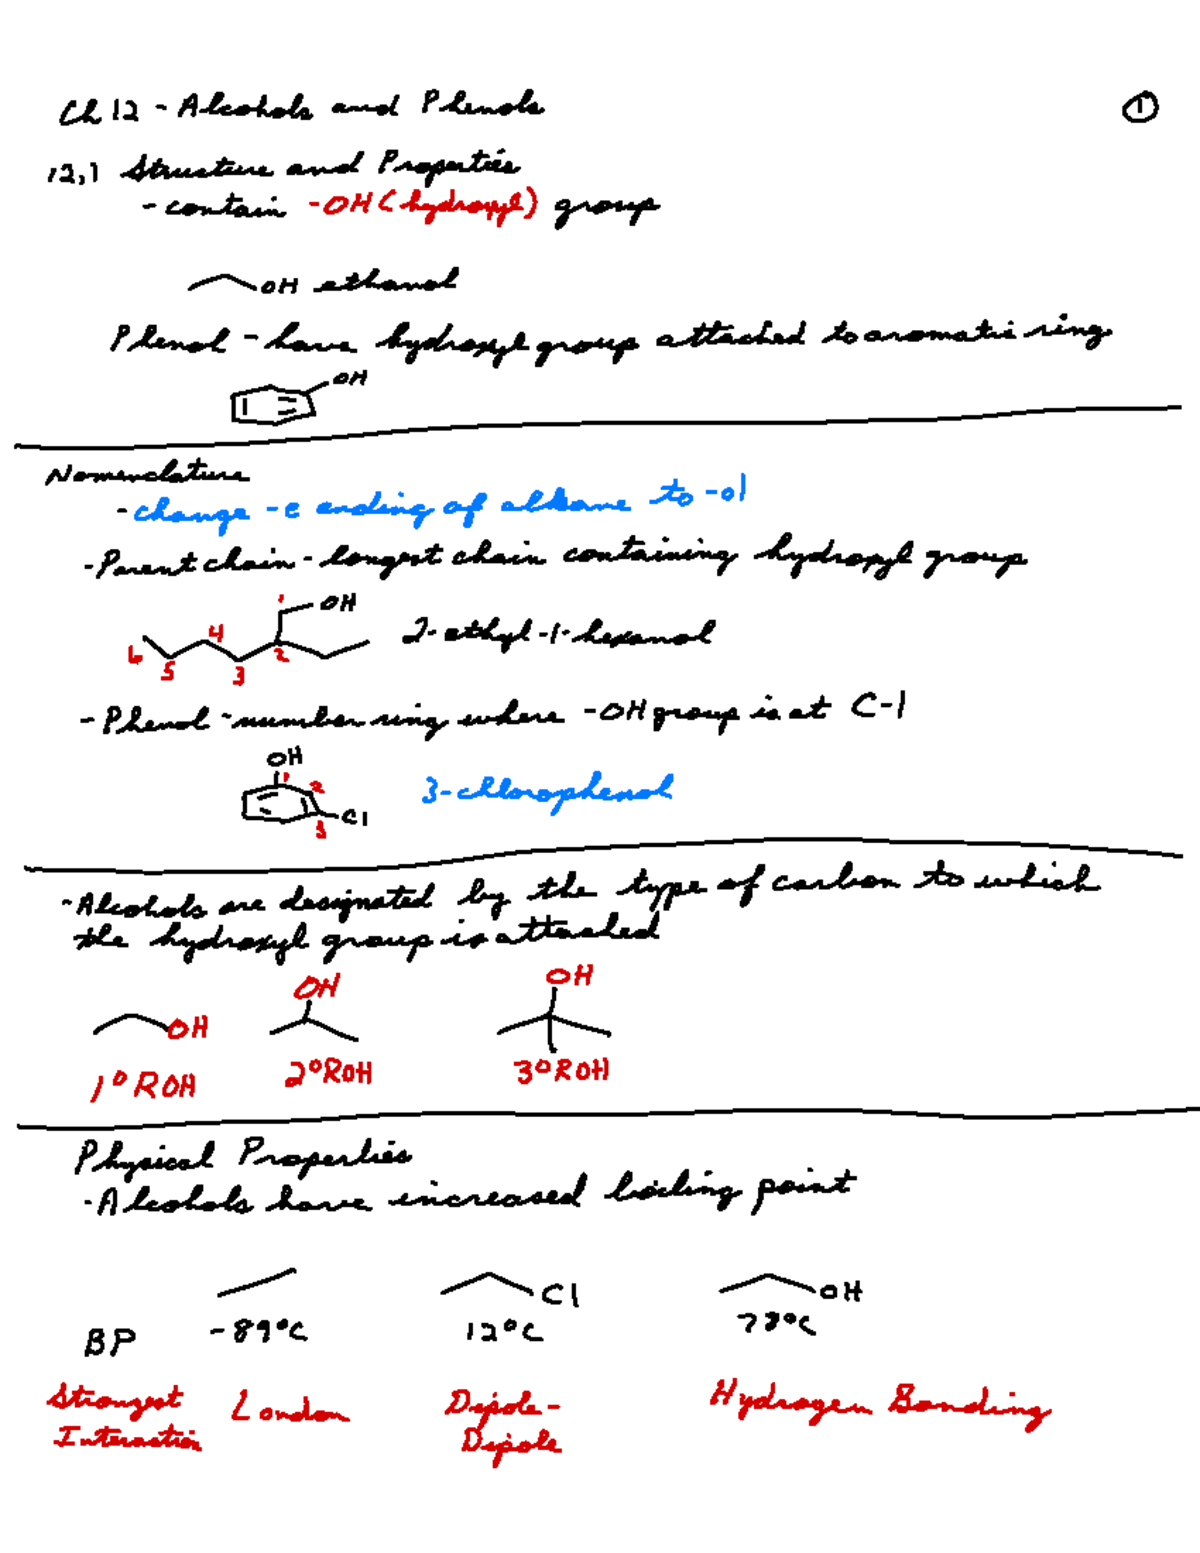 Ch 12 - Alcohols and Phenols
①
12.1 Structure and Properties
- contain -OH (hydroxyl) group
OH ethanol
Phenol - have hydroxyl group attached to aromatic ring
OH
Nomenclature
- change -e ending of alkane to -ol
- Parent chain - longest chain containing hydroxyl group
1 OH
6 5 4 3 2 2-ethyl-1-hexanol
- Phenol - number ring where -OH group is at C-1
OH
1 2 3 Cl 3-chlorophenol
- Alcohols are designated by the type of carbon to which
the hydroxyl group is attached
OH OH OH
1° ROH 2° ROH 3° ROH
Physical Properties
- Alcohols have increased boiling point
Cl OH
BP -89°C 12°C 78°C
Strongest London Dipole- Hydrogen Bonding
Interaction Dipole